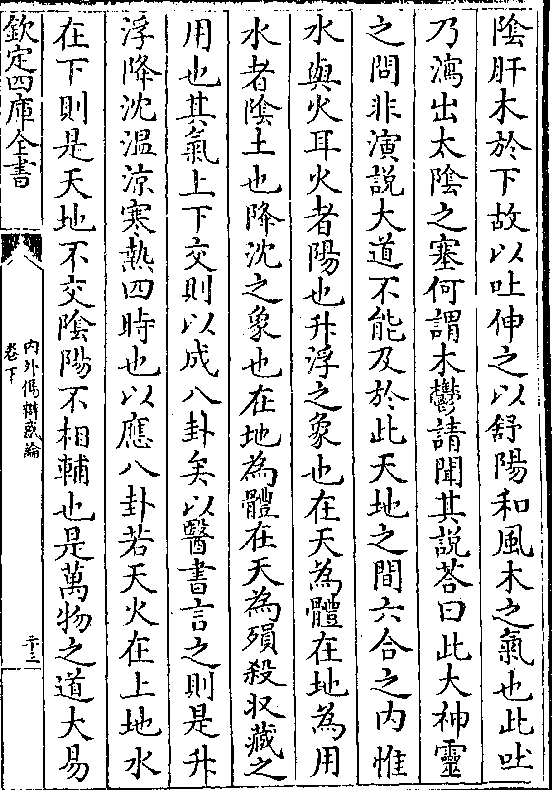 陰肝木於下故以吐伸之以舒陽和風木之氣也此吐
乃瀉出太陰之塞何謂木鬱請聞其説荅曰此大神靈
之問非演説大道不能及於此天地之間六合之内惟
水與火耳火者陽也升浮之象也在天為體在地為用
水者陰土也降沈之象也在地為體在天為殞殺收藏之
用也其氣上下交則以成八卦矣以醫書言之則是升
浮降沈温涼寒熱四時也以應八卦若天火在上地水
在下則是天地不交陰陽不相輔也是萬物之道大易
欽定四庫全書
内外傷辯惑論
卷下
二十三